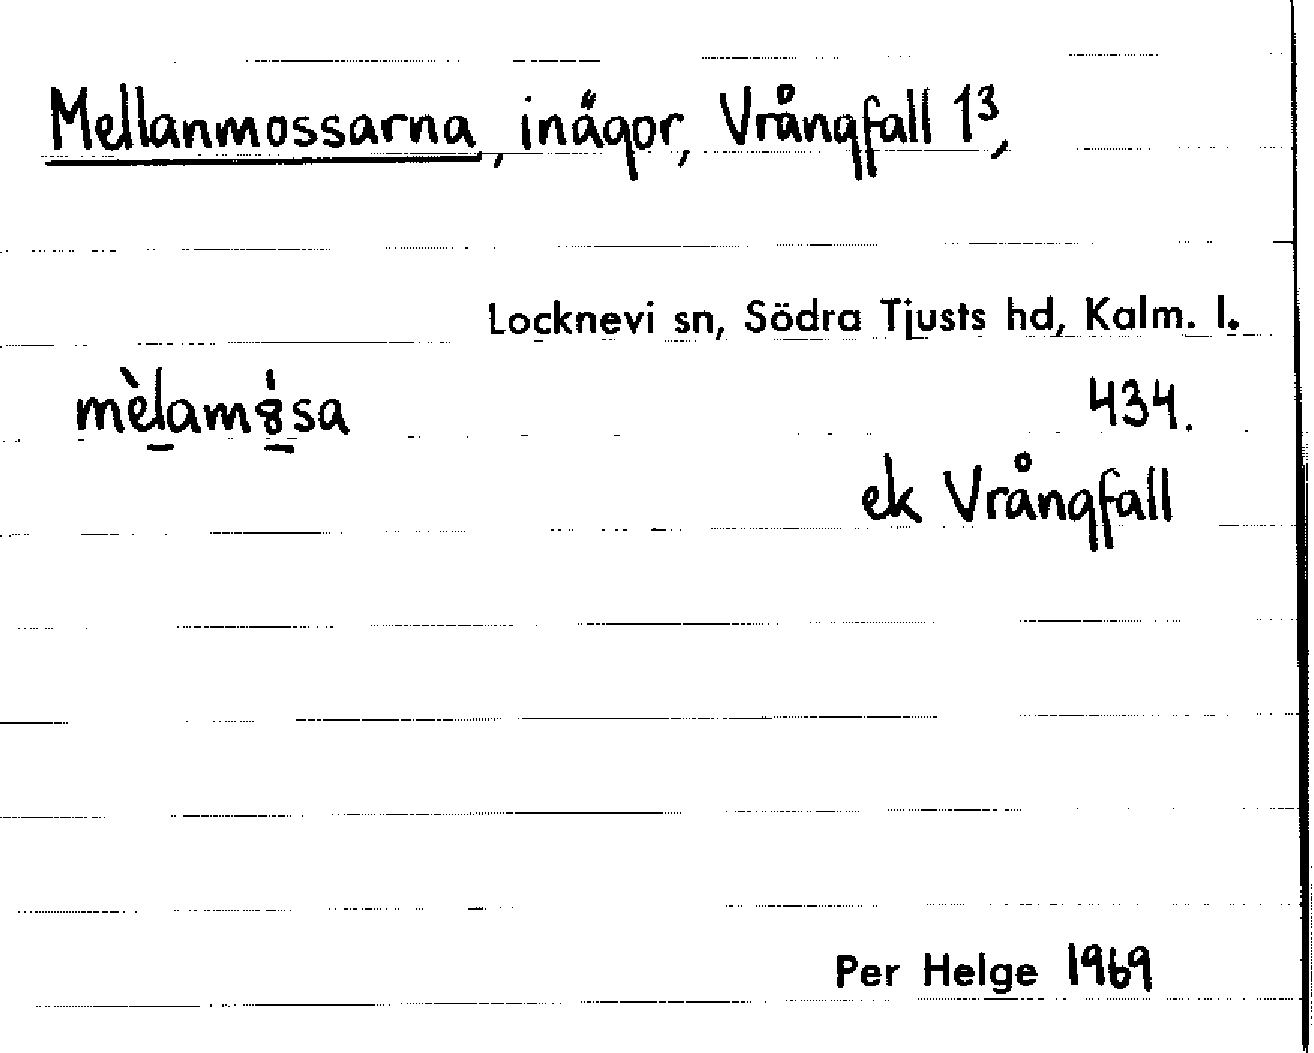 Mellanmossarna, inägor, Vrångfall 1³,
Locknevi sn, Södra Tjusts hd, Kalm. l.
434.
ek Vrångfall
Per Helge 1969